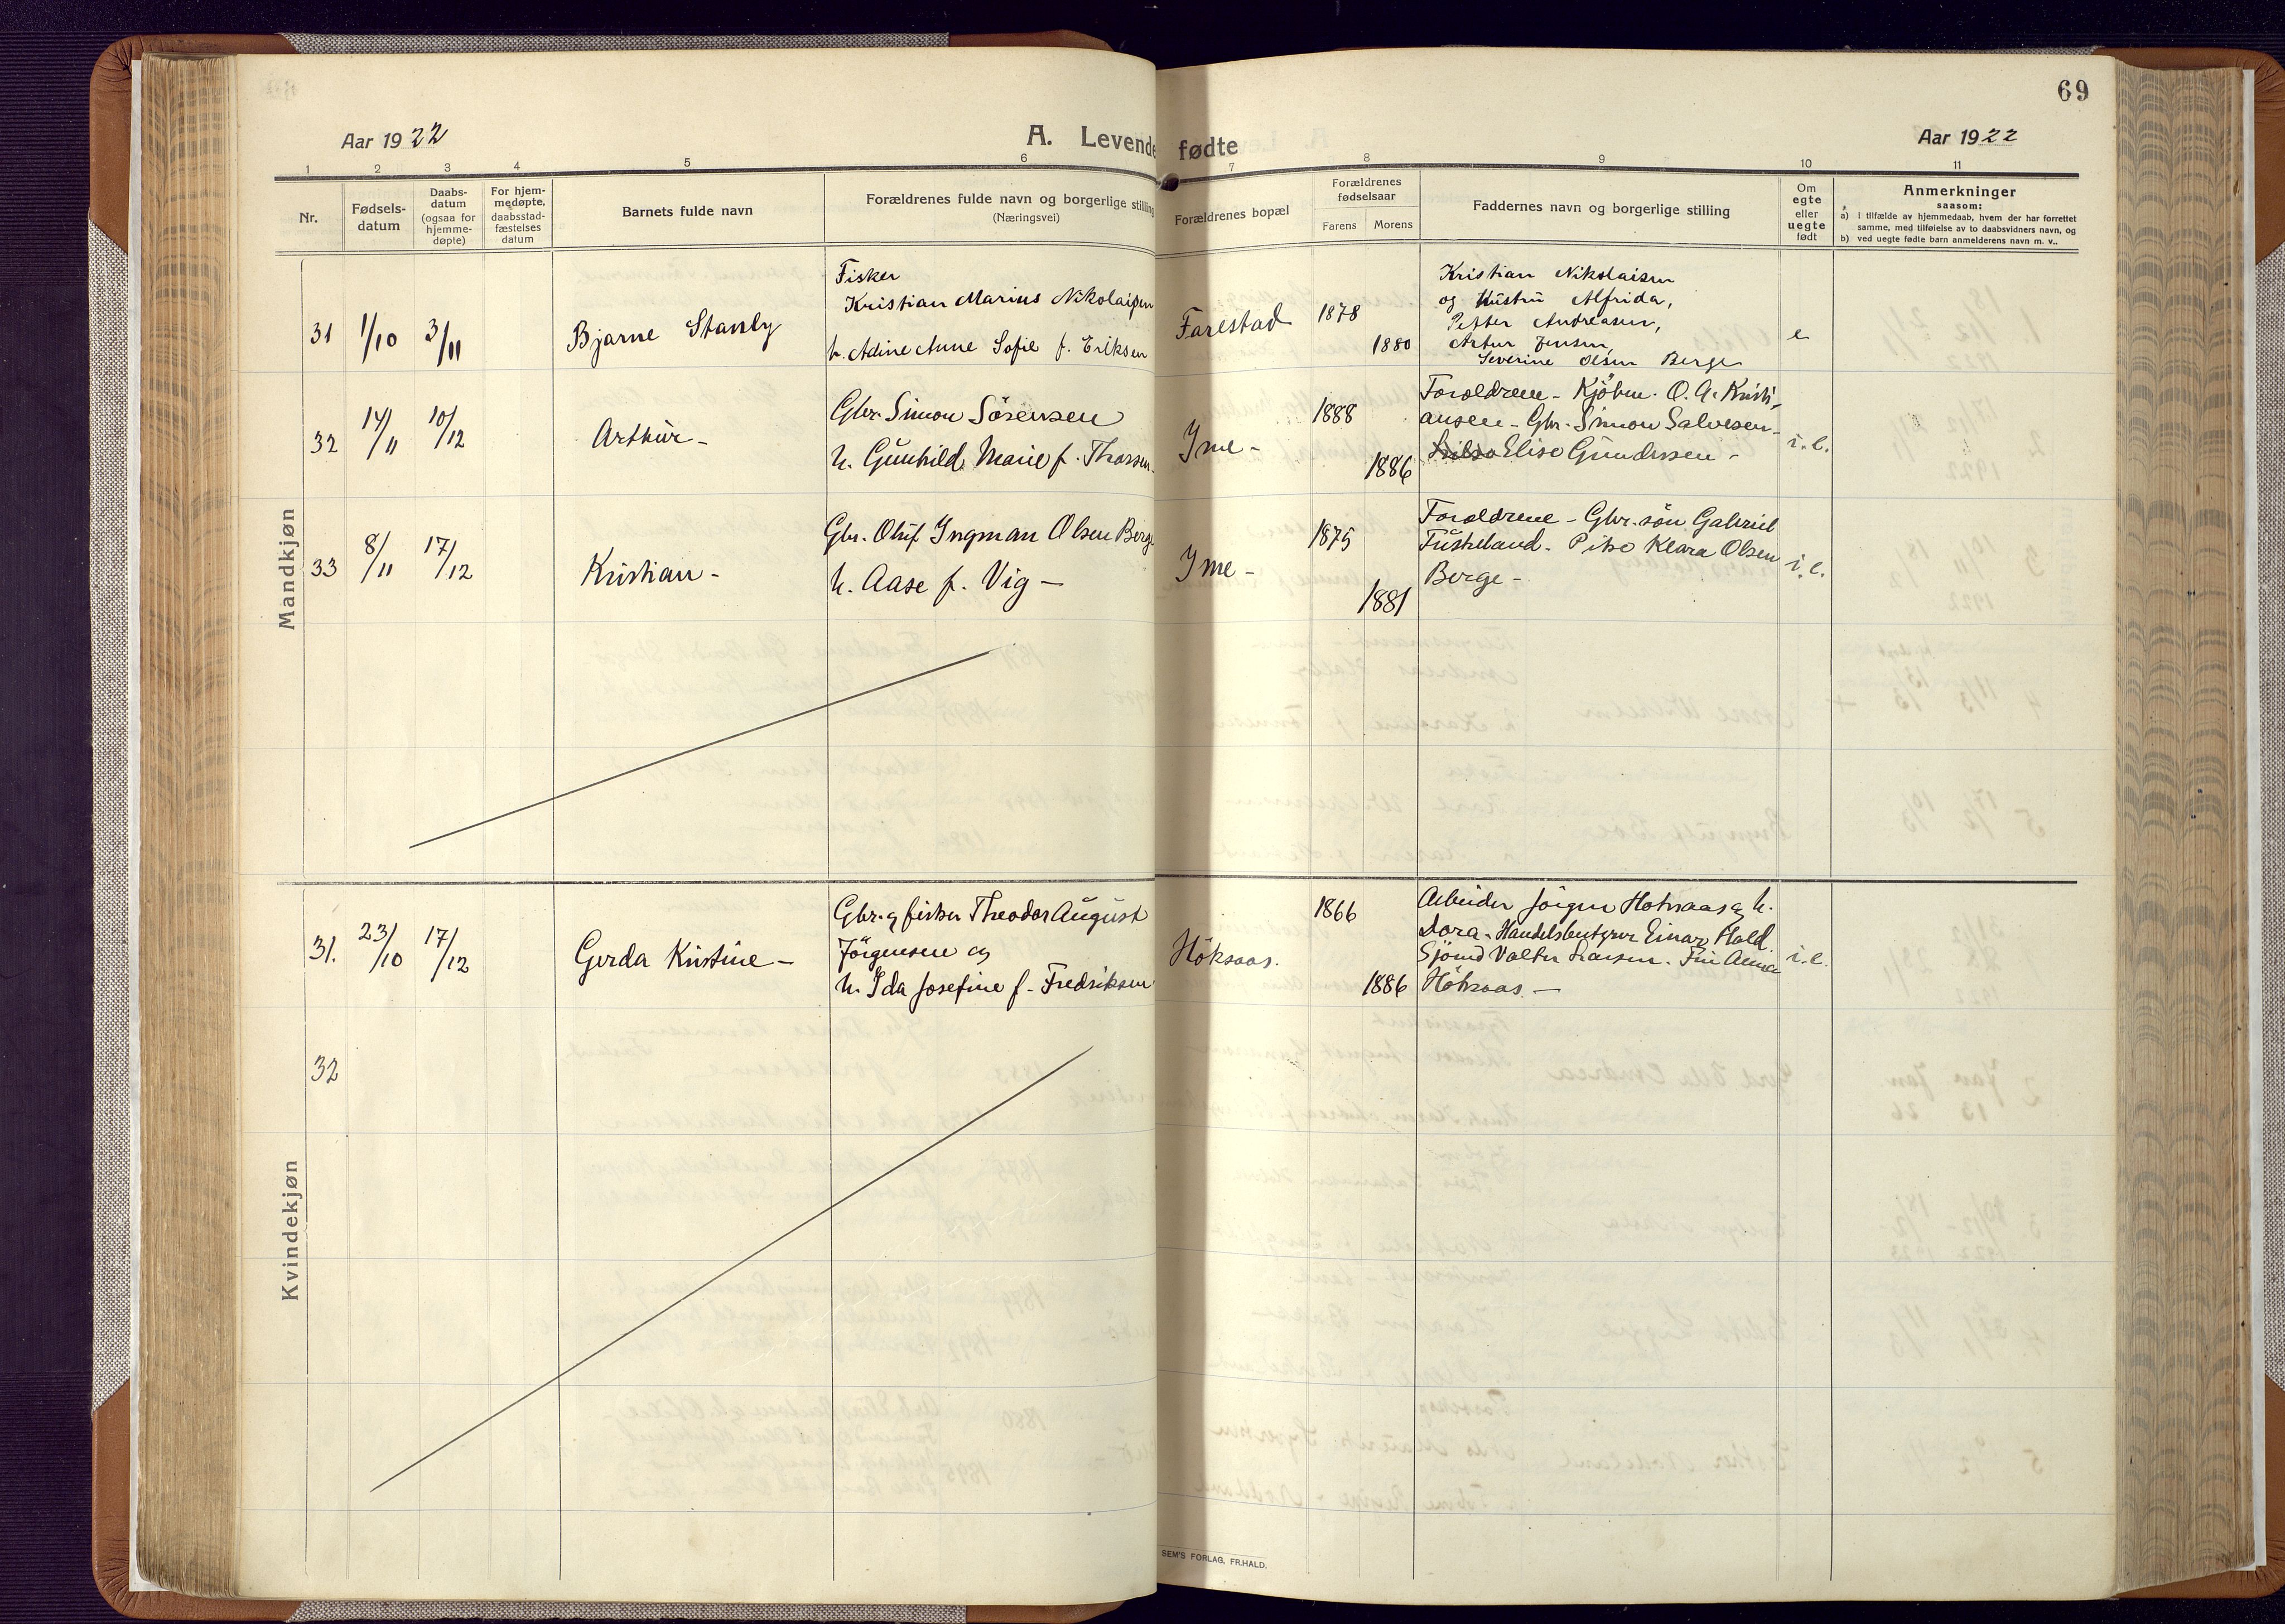 69
Aar 1922
A. Levende fødte
Aar 1922
1 2 3 4 5 6 7 8 9 10 11
Nr.
Fødsels-
datum
Daabs-
datum
(ogsaa for
hjemme-
døpte)
For hjem-
medøpte,
daabsstad-
fæstelses
datum
Barnets fulde navn
Forældrenes fulde navn og borgerlige stilling
(Næringsvei)
Forældrenes bopæl
Forældrenes
fødselsaar
Farens Morens
Faddernes navn og borgerlige stilling
Om
egte
eller
uegte
født
Anmerkninger
saasom:
a) i tilfælde av hjemmedaab, hvem der har forrettet
samme, med tilføielse av to daabsvidners navn, og
b) ved uegte fødte barn anmelderens navn m. v..
Mandkjøn
31 1/10 3/11 Bjarne Stanly
Fisker
Kristian Marius Nikolaisen
h. Adine Anne Sofie f. Eriksen
Farestad
1878
1880
Kristian Nikolaisen
og Hustru Alfrida,
Petter Andreasen,
Artur Jensen,
Severine Olsen Berge
e
32 14/11 10/12 Arthur -
Gbr. Simon Sørensen
h. Gunhild Marie f. Thorsen.
Ime -
1888
1886
Forældrene - Kjöbm. O. A. Kristi-
ansen - Gbr. Simon Salvesen -
Elise Gundersen -
i. e.
33 8/11 17/12 Kristian -
Gbr. Oluf Ingman Olsen Berge
h. Aase f. Vig -
Ime -
1875
1881
Forældrene - Gbr. sön Gabriel
Tusheland. Pike Klara Olsen
Berge -
i. e.
Kvindekjøn
31. 23/10 17/12 Gerda Kristine -
Gbr. og fisker Theodor August
Jörgensen og
h. Ida Josefine f. Fredriksen
Höksaas.
1866
1886
Arbeider Jörgen Höksaas og h.
Dora. Handelsbestyrer Einar Hald.
Sjömd Valter Larsen. Frk Anna
Höksaas. -
i. e.
32
SEM'S FORLAG, FR.HALD.